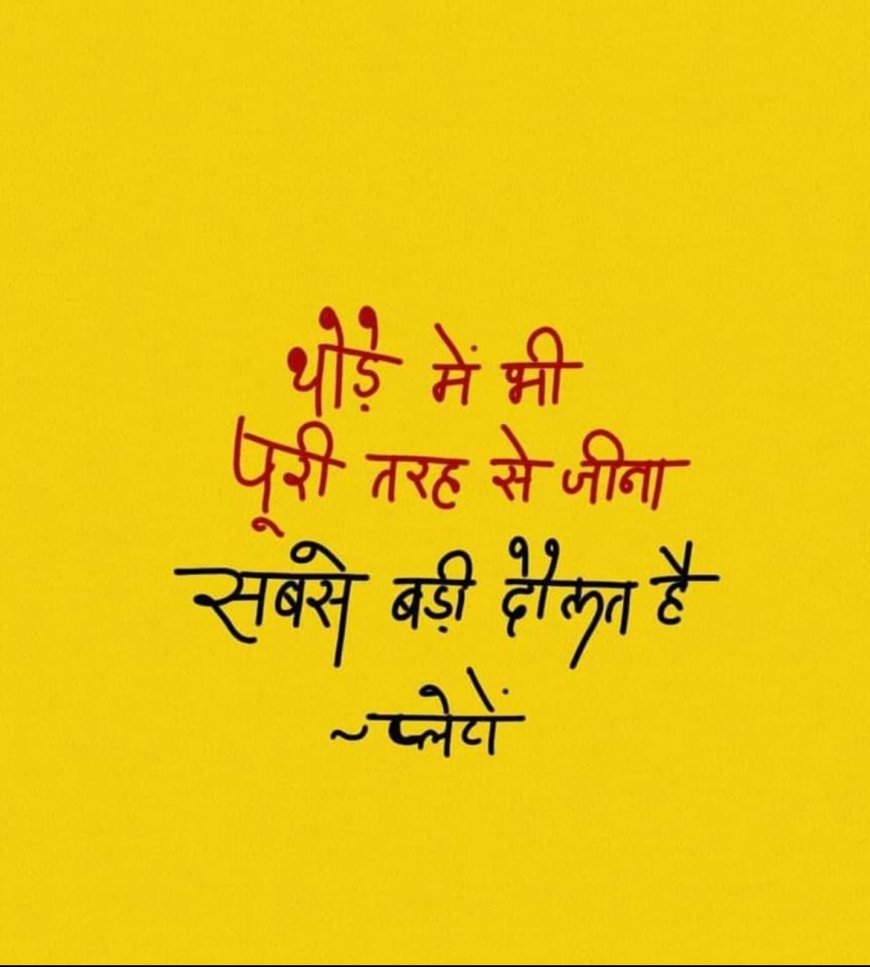 थोड़े में भी
पूरी तरह से जीना
सबसे बड़ी दौलत है
~प्लेटों